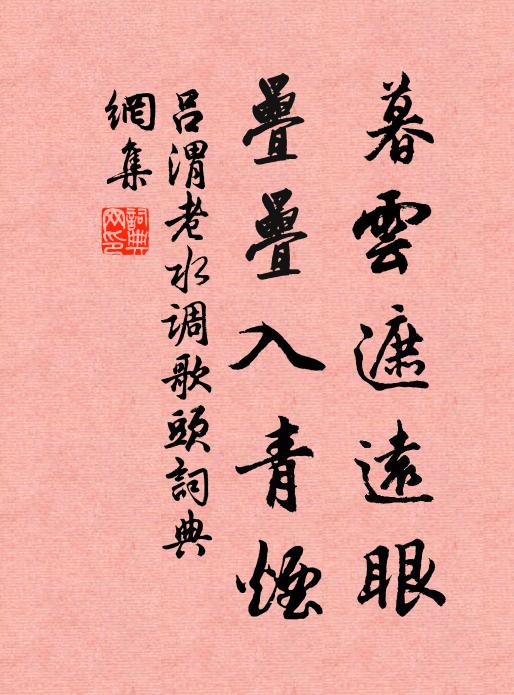 暮雲遮遠眼
疊疊入青煙
吕渭老水调歌頭詞典
網集
詞典網印